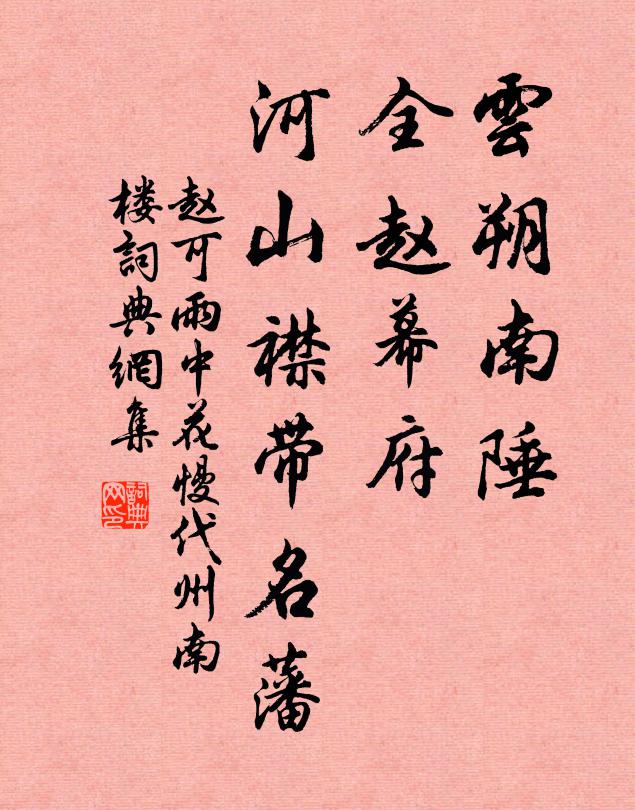 雲朔南陲
全赵幕府
河山襟带名藩
赵可雨中花慢代州南
楼詞典網集
詞典
网印